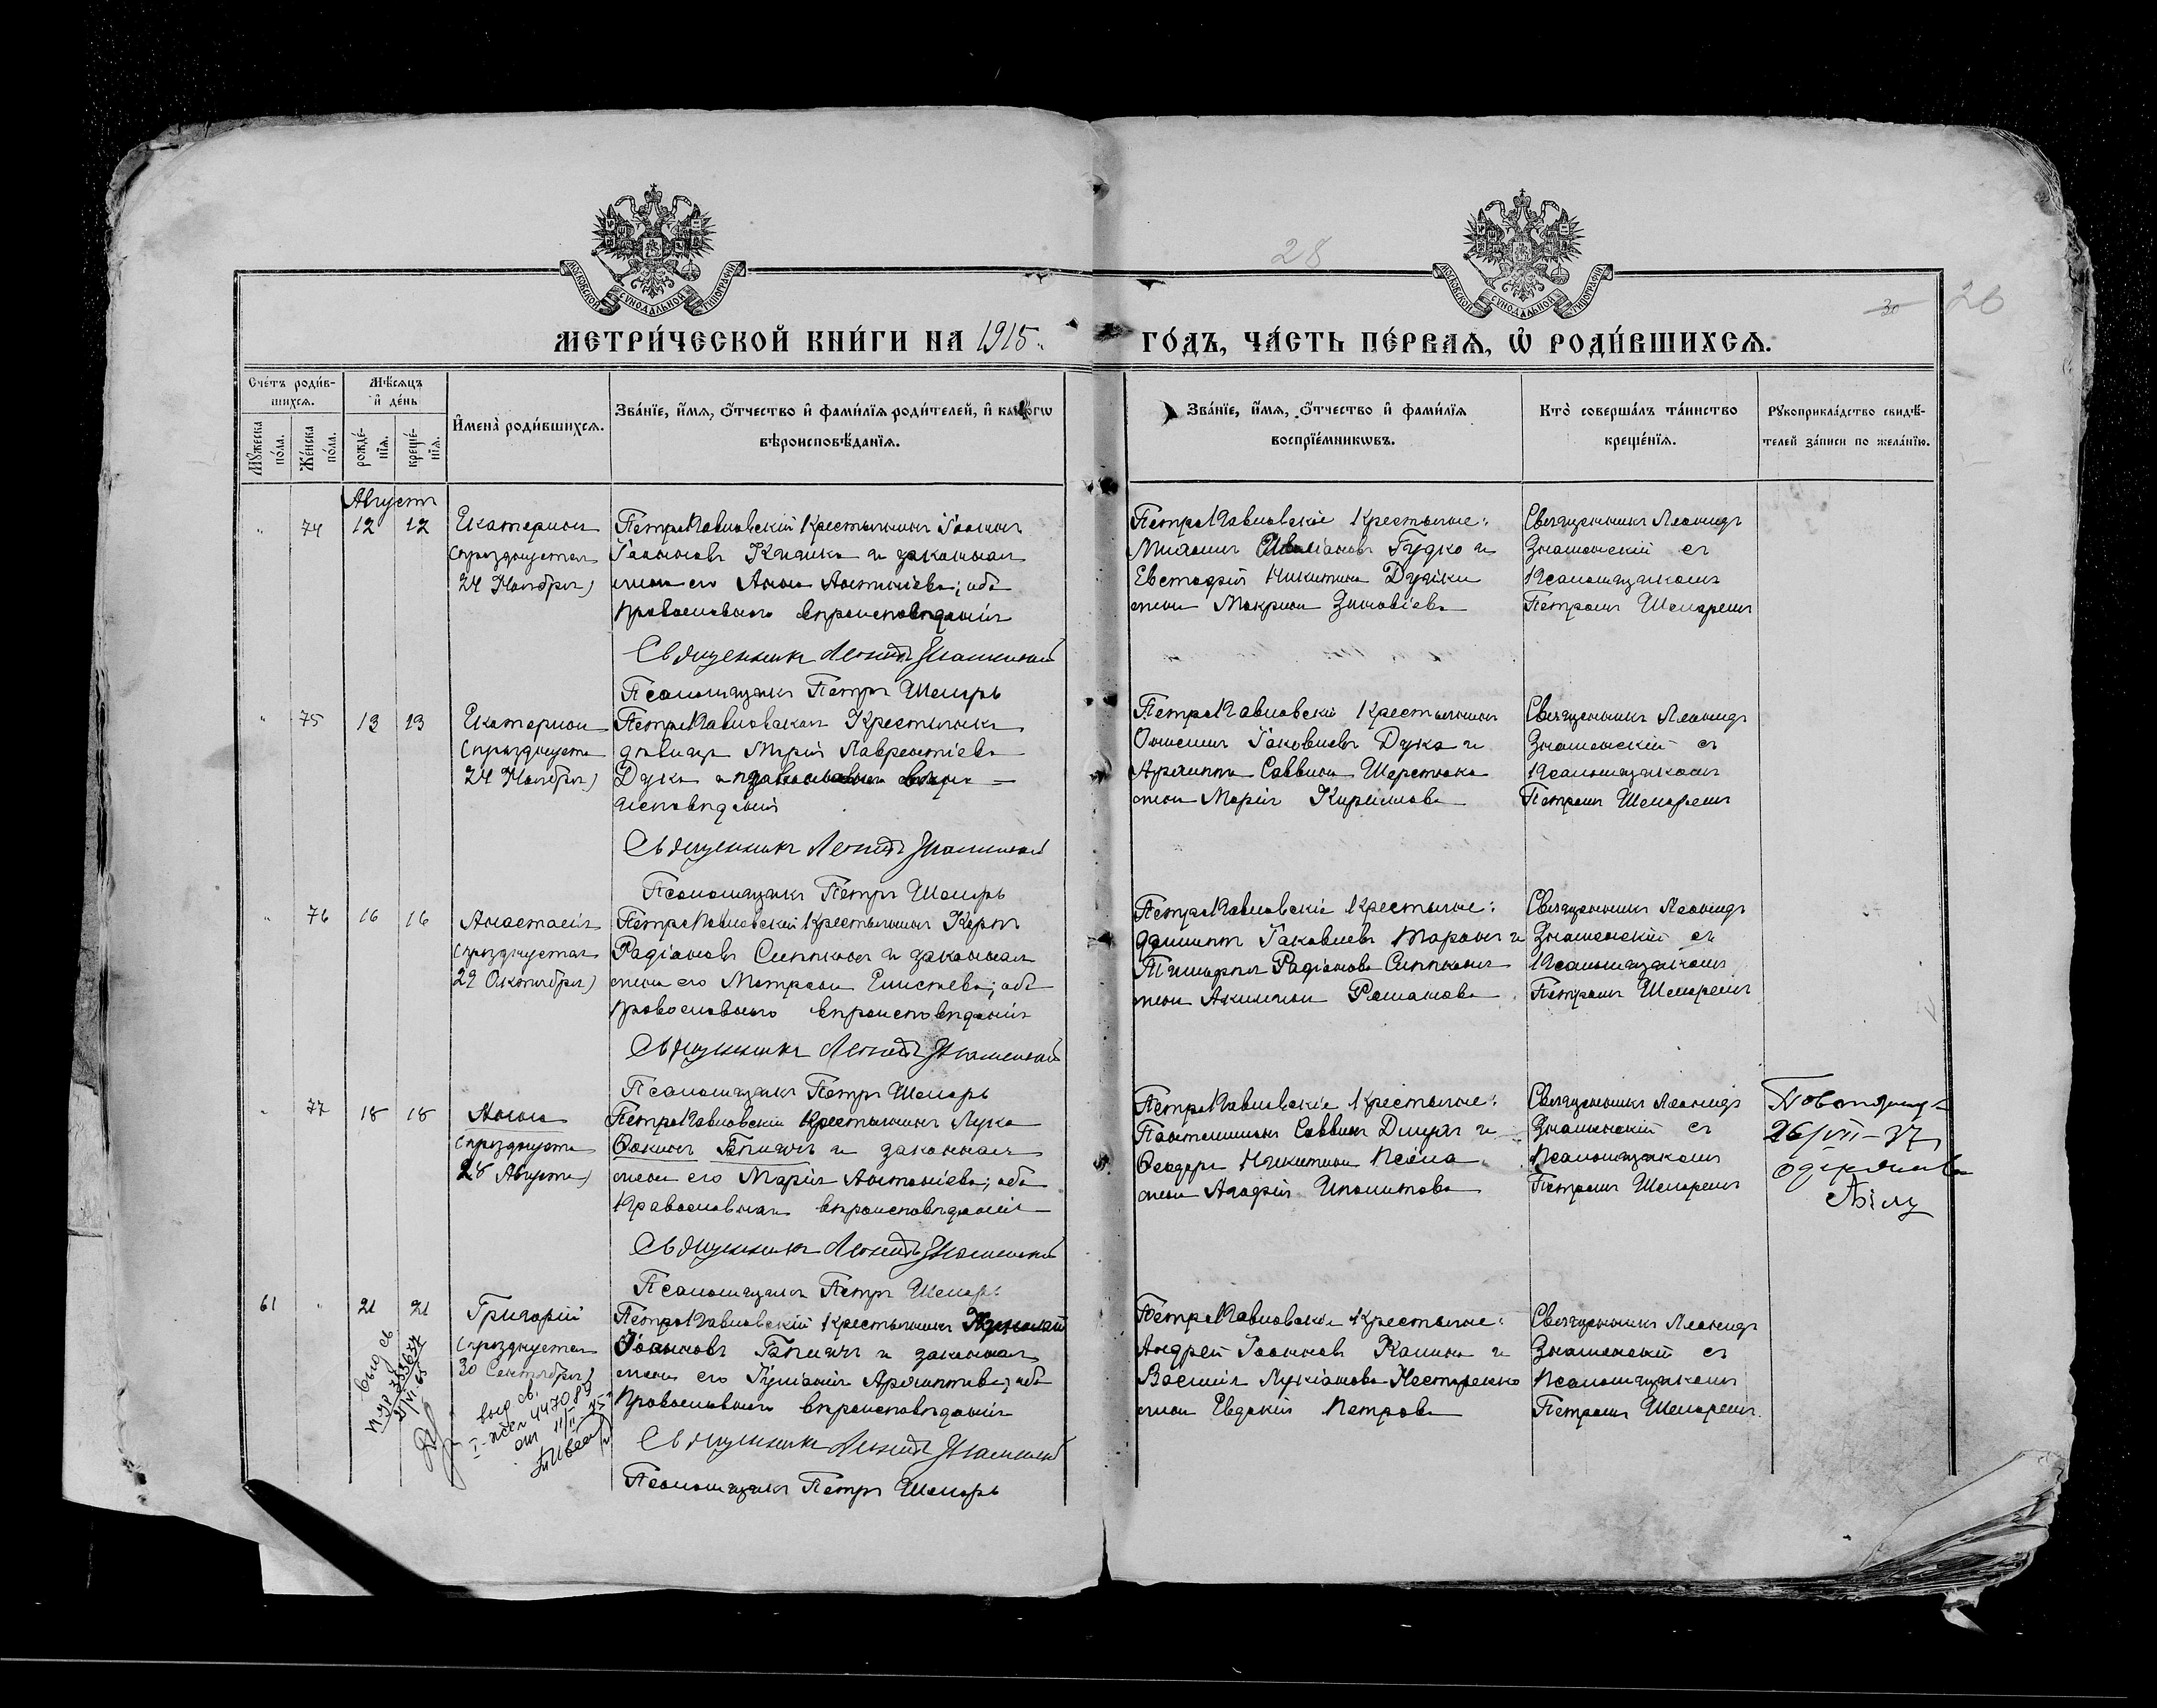 МОСКОВСКОЙ СУНОДАЛЬНОЙ ТИПОГРАФІИ
МОСКОВСКОЙ СУНОДАЛЬНОЙ ТИПОГРАФІИ
28
30
26
МЕТРИ́ЧЕСКОЙ КНИ́ГИ НА 1915
ГО́ДЪ, ЧА́СТЬ ПЕ́РВАѦ, Ѡ҆ РОДИ́ВШИХСѦ.
Сче́тъ роди́в-
шихсѧ.
Мꙋ́жеска по́ла.
Же́нска по́ла.
Мѣ́сѧцъ
и҆ де́нь
рожде́-
нїѧ.
креще́-
нїѧ.
И҆мена̀ роди́вшихсѧ.
Зва́нїе, и҆́мѧ, ѻ҆́тчество и҆ фами́лїѧ роди́телей, и҆ како́гѡ
вѣроисповѣ́данїѧ.
Зва́нїе, и҆́мѧ, ѻ҆́тчество и҆ фами́лїѧ
воспрїе́мникѡвъ.
Кто̀ соверша́лъ та́инство
креще́нїѧ.
Рꙋкоприкла́дство свидѣ́-
телей за́писи по жела́нїю.
Августъ
74 12 12
Екатерина
(празднуется
24 Ноября)
ПетроПавловскій Крестьянинъ Іоаннъ
Іоанновъ и законная
жена его Анна Антоніева; оба
православнаго вѣроисповѣданія
Священникъ Леонидъ Знаменскій
Псаломщикъ Петръ Шемарь
ПетроПавловскіе Крестьяне:
Гудко и
Евстафія Никитина Дуйки
жена Макрина Зиновіева
Священникъ Леонидъ
Знаменскій съ
Псаломщикомъ
Петромъ Шемаремъ
75 13 13
Екатерина
(празднуется
24 Ноября)
ПетроПавловская Крестьянка
дѣвица Марія Лаврентіева
Дука
исповѣданія
Священникъ Леонидъ Знаменскій
Псаломщикъ Петръ Шемарь
ПетроПавловскій Крестьянинъ
Онисимъ Іаковлевъ Дука и
Архиппа Саввина Шерстюка
жена Марія Кириллова
Священникъ Леонидъ
Знаменскій съ
Псаломщикомъ
Петромъ Шемаремъ
76 16 16
Анастасія
(празднуется
29 Октября)
ПетроПавловскій Крестьянинъ Карпъ
Радіоновъ и законная
жена его Матрона Елисеева; оба
православнаго вѣроисповѣданія
Священникъ Леонидъ Знаменскій
Псаломщикъ Петръ Шемарь
ПетроПавловскіе Крестьяне:
Даніилъ Іаковлевъ Таранъ и
Тимофея Радіонова
жена Акилина Романова
Священникъ Леонидъ
Знаменскій съ
Псаломщикомъ
Петромъ Шемаремъ
77 18 18
Анна
(празднуется
28 Августа)
ПетроПавловскій Крестьянинъ Лука
Фокинъ и законная
жена его Марія Антоніева; оба
Православнаго вѣроисповѣданія
Священникъ Леонидъ Знаменскій
Псаломщикъ Петръ Шемарь
ПетроПавловскіе Крестьяне:
Пантелимонъ Саввинъ и
Ѳеодора Никитина
жена Агафія Ипполитова
Священникъ Леонидъ
Знаменскій съ
Псаломщикомъ
Петромъ Шемаремъ
26/VII-37
61 21 21
Григорій
(празднуется
30 Сентября)
ПетроПавловскій Крестьянинъ
Іоанновъ и законная
жена его Іуліанія Архиптева; оба
Православнаго вѣроисповѣданія
Священникъ Леонидъ Знаменскій
Псаломщикъ Петръ Шемарь
ПетроПавловскіе Крестьяне:
Андрей Іоанновъ Калина и
Василія Лукіанова Нестеренко
жена Евдокія Петрова
Священникъ Леонидъ
Знаменскій съ
Псаломщикомъ
Петромъ Шемаремъ